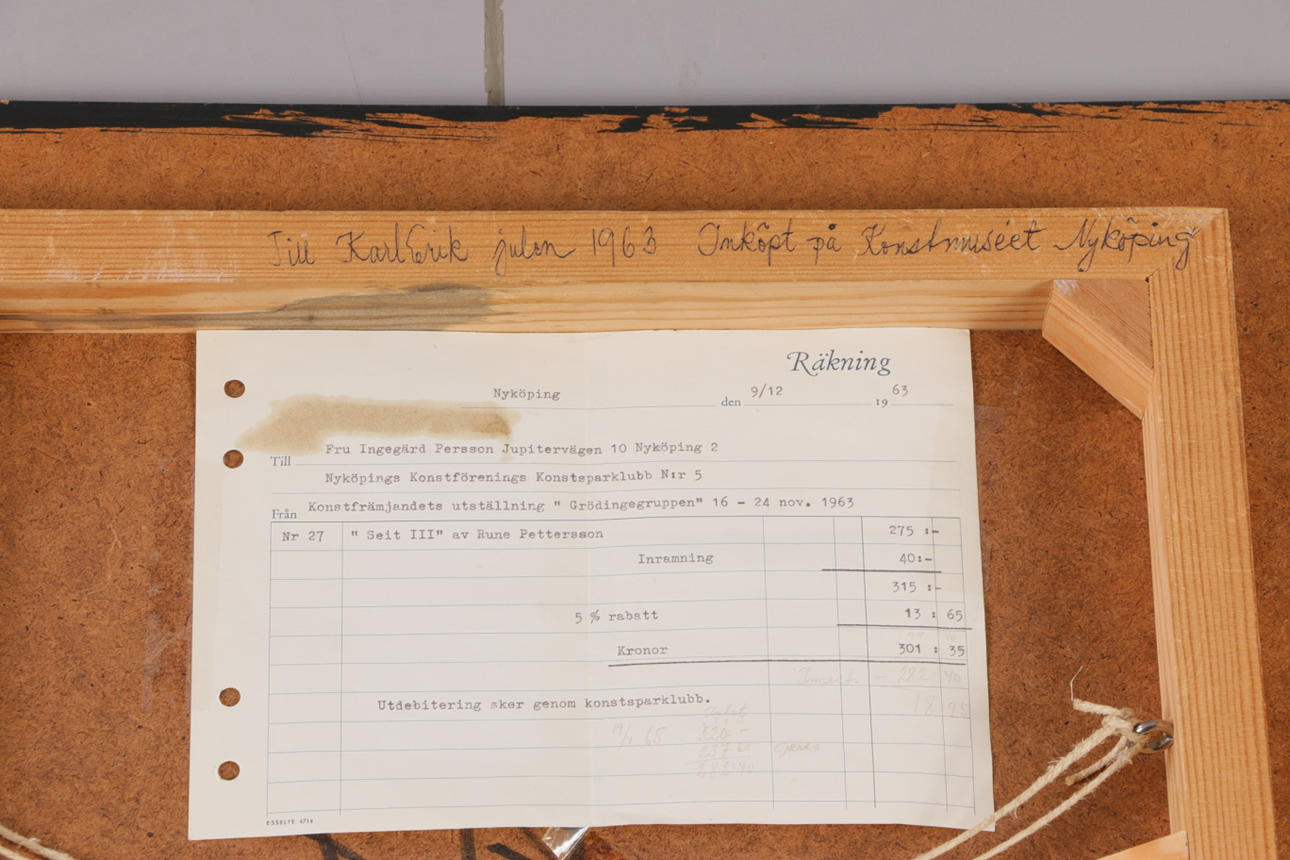 Till KarlErik julen 1963 Inköpt på Konstmuséet Nyköping
Räkning
Nyköping den 9/12 19 63
Till Fru Ingegärd Persson Jupitervägen 10 Nyköping 2
Nyköpings Konstförenings Konstsparklubb N:r 5
Från Konstfrämjandets utställning " Grödingegruppen" 16 - 24 nov. 1963
Nr 27 " Seit III" av Rune Pettersson 275 :-
Inramning 40:-
315 :-
5 % rabatt 13 : 65
Kronor 301 : 35
- 282 40
18 95
Utdebitering sker genom konstsparklubb.
19/1 65 320 -
282:40
ESSELTE 4714